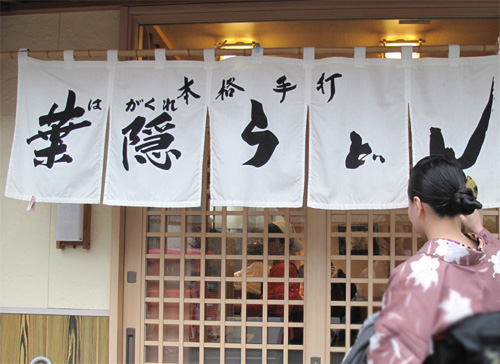 本格手打
はがくれ
葉隠うどん